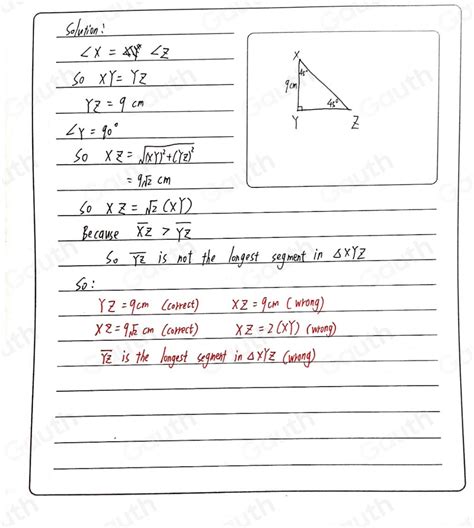 Solution:
∠X = ∠Z
So XY = YZ
YZ = 9 cm
∠Y = 90°
So XZ = √(XY)²+(YZ)²
= 9√2 cm
So XZ = √2 (XY)
Because XZ > YZ
So YZ is not the longest segment in △XYZ
So:
YZ = 9cm (correct) XZ = 9cm (wrong)
XZ = 9√2 cm (correct) XZ = 2(XY) (wrong)
YZ is the longest segment in △XYZ (wrong)
X
45°
9cm
45°
Y Z
Gauth